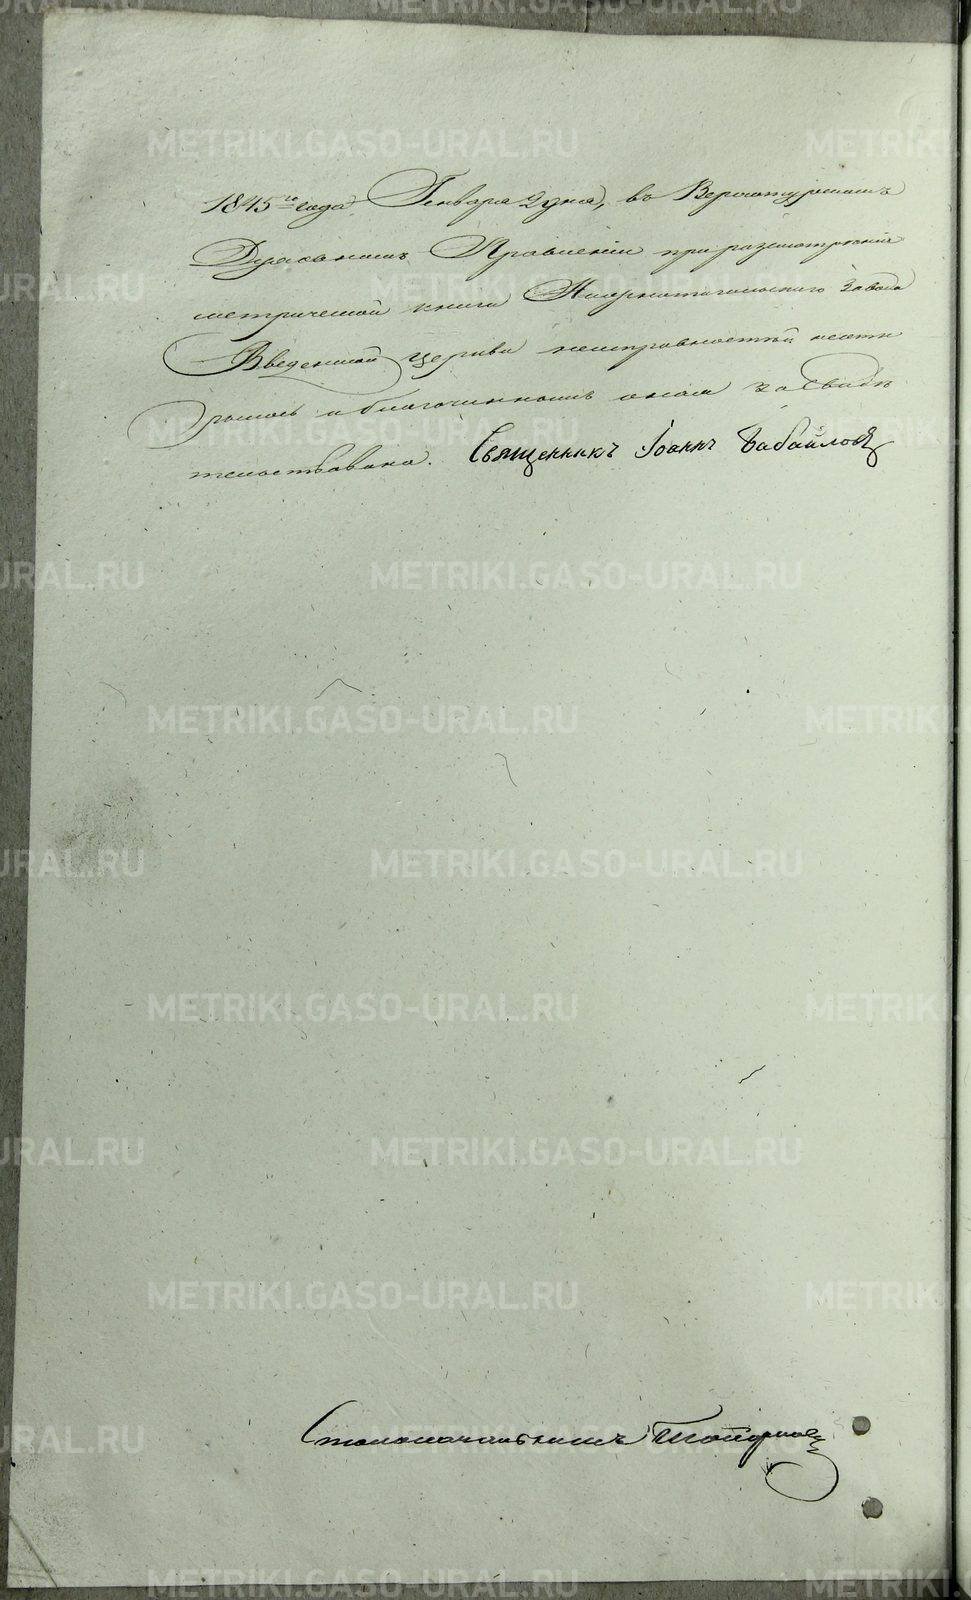 1845го года Генваря 2 дня, въ Верхотурскомъ
Духовномъ Правленіи при разсмотреніи
метрической книги Нижнетагильскаго завода
Введенской церкви неисправностей
и благочиннымъ оная засвидѣ
тельствована. Священникъ Іоаннъ Бабайловъ
Столоначальникъ
METRIKI.GASO-URAL.RU